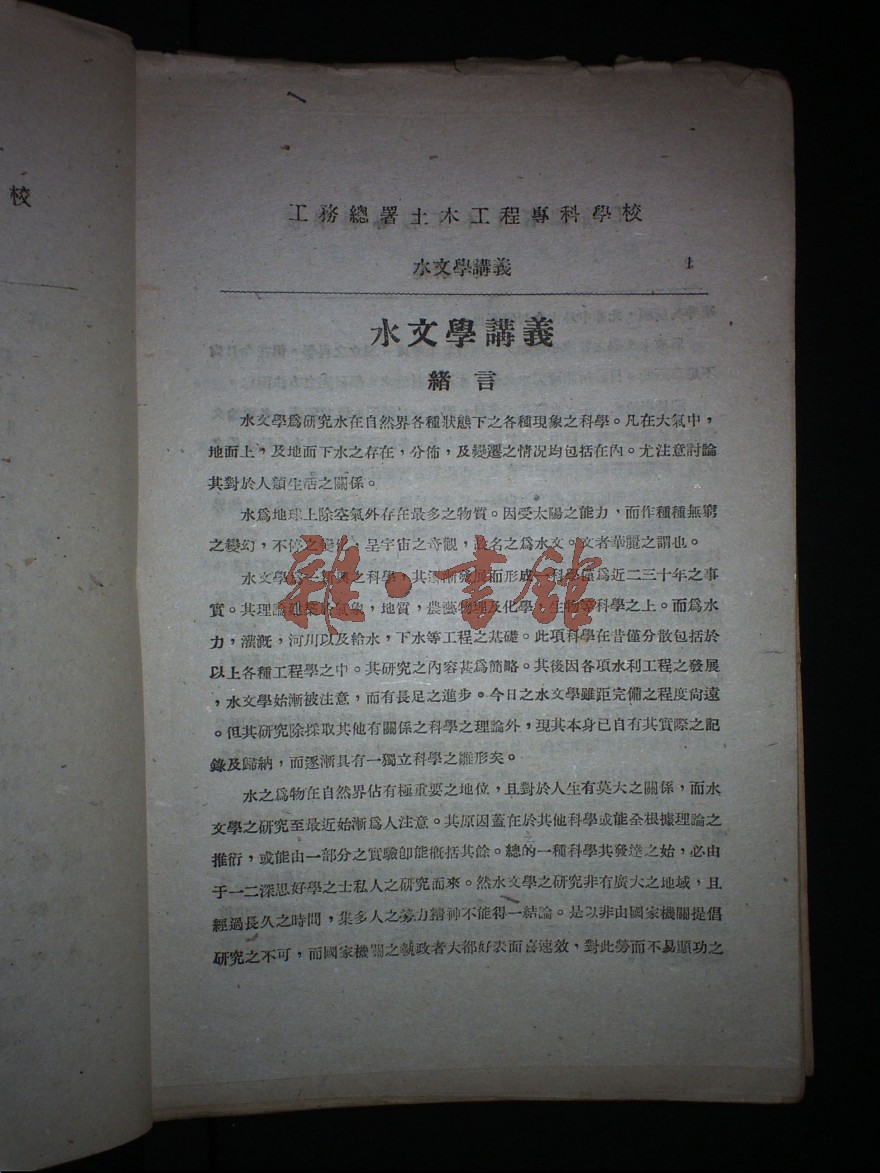 校
工務總署土木工程專科學校
水文學講義
1
水文學講義
緒言
水文學爲研究水在自然界各種狀態下之各種現象之科學。凡在大氣中，
地面上，及地面下水之存在，分佈，及變遷之情况均包括在內。尤注意討論
其對於人類生活之關係。
水爲地球上除空氣外存在最多之物質。因受太陽之能力，而作種種無窮
之變幻，不停之變化，呈宇宙之奇觀，名之爲水文。文者華麗之謂也。
水文學爲一新興之科學，其漸發展而形成一科學僅爲近二三十年之事
實。其理論建築於氣象，地質，農藝物理及化學，生物等科學之上。而爲水
力，灌漑，河川以及給水，下水等工程之基礎。此項科學在昔僅分散包括於
以上各種工程學之中。其研究之內容甚爲簡略。其後因各項水利工程之發展
，水文學始漸被注意，而有長足之進步。今日之水文學雖距完備之程度尙遠
。但其研究除採取其他有關係之科學之理論外，現其本身已自有其實際之記
錄及歸納，而逐漸具有一獨立科學之雛形矣。
水之爲物在自然界佔有極重要之地位，且對於人生有莫大之關係，而水
文學之研究至最近始漸爲人注意。其原因蓋在於其他科學或能全根據理論之
推衍，或能由一部分之實驗卽能槪括其餘。總的一種科學其發達之始，必由
于一二深思好學之士私人之研究而來。然水文學之研究非有廣大之地域，且
經過長久之時間，集多人之勞力精神不能得一結論。是以非由國家機關提倡
研究之不可，而國家機關之執政者大都好表面喜速效，對此勞而不易顯功之
雜·書館